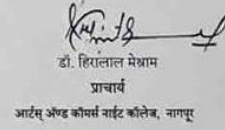 डॉ. हिरालाल मेश्राम
प्राचार्य
आर्टस् ॲण्ड कॉमर्स नाईट कॉलेज, नागपूर